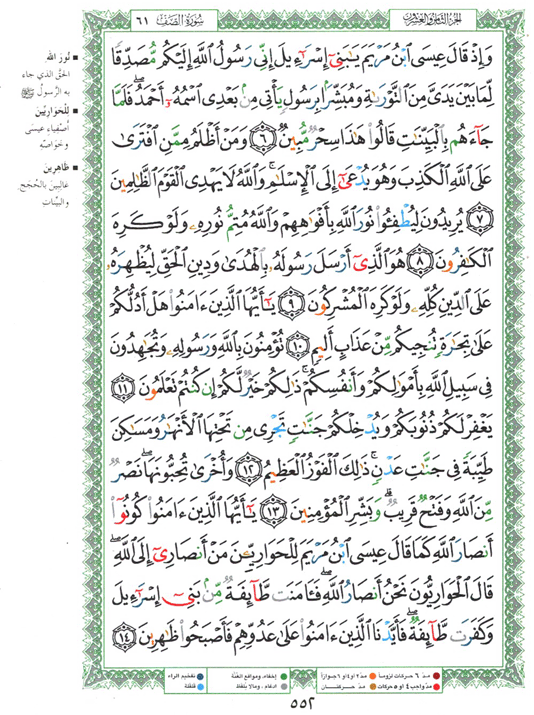 الجزء الثامن والعشرون
سورة الصف ٦١
وَإِذْ قَالَ عِيسَى ٱبْنُ مَرْيَمَ يَـٰبَنِىٓ إِسْرَٰٓءِيلَ إِنِّى رَسُولُ ٱللَّهِ إِلَيْكُم مُّصَدِّقًا
لِّمَا بَيْنَ يَدَىَّ مِنَ ٱلتَّوْرَىٰةِ وَمُبَشِّرًۢا بِرَسُولٍ يَأْتِى مِنۢ بَعْدِى ٱسْمُهُۥٓ أَحْمَدُ ۖ فَلَمَّا
جَآءَهُم بِٱلْبَيِّنَـٰتِ قَالُوا۟ هَـٰذَا سِحْرٌ مُّبِينٌ ٦ وَمَنْ أَظْلَمُ مِمَّنِ ٱفْتَرَىٰ
عَلَى ٱللَّهِ ٱلْكَذِبَ وَهُوَ يُدْعَىٰٓ إِلَى ٱلْإِسْلَـٰمِ ۚ وَٱللَّهُ لَا يَهْدِى ٱلْقَوْمَ ٱلظَّـٰلِمِينَ
٧ يُرِيدُونَ لِيُطْفِـُٔوا۟ نُورَ ٱللَّهِ بِأَفْوَٰهِهِمْ وَٱللَّهُ مُتِمُّ نُورِهِۦ وَلَوْ كَرِهَ
ٱلْكَـٰفِرُونَ ٨ هُوَ ٱلَّذِىٓ أَرْسَلَ رَسُولَهُۥ بِٱلْهُدَىٰ وَدِينِ ٱلْحَقِّ لِيُظْهِرَهُۥ
عَلَى ٱلدِّينِ كُلِّهِۦ وَلَوْ كَرِهَ ٱلْمُشْرِكُونَ ٩ يَـٰٓأَيُّهَا ٱلَّذِينَ ءَامَنُوا۟ هَلْ أَدُلُّكُمْ
عَلَىٰ تِجَـٰرَةٍ تُنجِيكُم مِّنْ عَذَابٍ أَلِيمٍ ١٠ تُؤْمِنُونَ بِٱللَّهِ وَرَسُولِهِۦ وَتُجَـٰهِدُونَ
فِى سَبِيلِ ٱللَّهِ بِأَمْوَٰلِكُمْ وَأَنفُسِكُمْ ۚ ذَٰلِكُمْ خَيْرٌ لَّكُمْ إِن كُنتُمْ تَعْلَمُونَ ١١
يَغْفِرْ لَكُمْ ذُنُوبَكُمْ وَيُدْخِلْكُمْ جَنَّـٰتٍ تَجْرِى مِن تَحْتِهَا ٱلْأَنْهَـٰرُ وَمَسَـٰكِنَ
طَيِّبَةً فِى جَنَّـٰتِ عَدْنٍ ۚ ذَٰلِكَ ٱلْفَوْزُ ٱلْعَظِيمُ ١٢ وَأُخْرَىٰ تُحِبُّونَهَا ۖ نَصْرٌ
مِّنَ ٱللَّهِ وَفَتْحٌ قَرِيبٌ ۗ وَبَشِّرِ ٱلْمُؤْمِنِينَ ١٣ يَـٰٓأَيُّهَا ٱلَّذِينَ ءَامَنُوا۟ كُونُوٓا۟
أَنصَارَ ٱللَّهِ كَمَا قَالَ عِيسَى ٱبْنُ مَرْيَمَ لِلْحَوَارِيِّـۧنَ مَنْ أَنصَارِىٓ إِلَى ٱللَّهِ ۖ
قَالَ ٱلْحَوَارِيُّونَ نَحْنُ أَنصَارُ ٱللَّهِ ۖ فَـَٔامَنَت طَّآئِفَةٌ مِّنۢ بَنِىٓ إِسْرَٰٓءِيلَ
وَكَفَرَت طَّآئِفَةٌ ۖ فَأَيَّدْنَا ٱلَّذِينَ ءَامَنُوا۟ عَلَىٰ عَدُوِّهِمْ فَأَصْبَحُوا۟ ظَـٰهِرِينَ ١٤
■ نُورَ الله
الحقَّ الذي جاء
به الرَّسول ﷺ
■ لِلْحَوَارِيِّين
أصفياء عيسى
وخواصّه
■ ظَاهِرِين
غالبين بالحُجَج
والبيِّنات
مدّ ٦ حركات لزوماً ● مدّ ٢ أو ٤ أو ٦ جوازاً ● إخفاء، ومواقع الغُنَّة ● تفخيم الراء
مدّ واجب ٤ أو ٥ حركات ● مدّ حركتان ● ادغام، ومالا يُلفظ ● قلقلة
٥٥٢